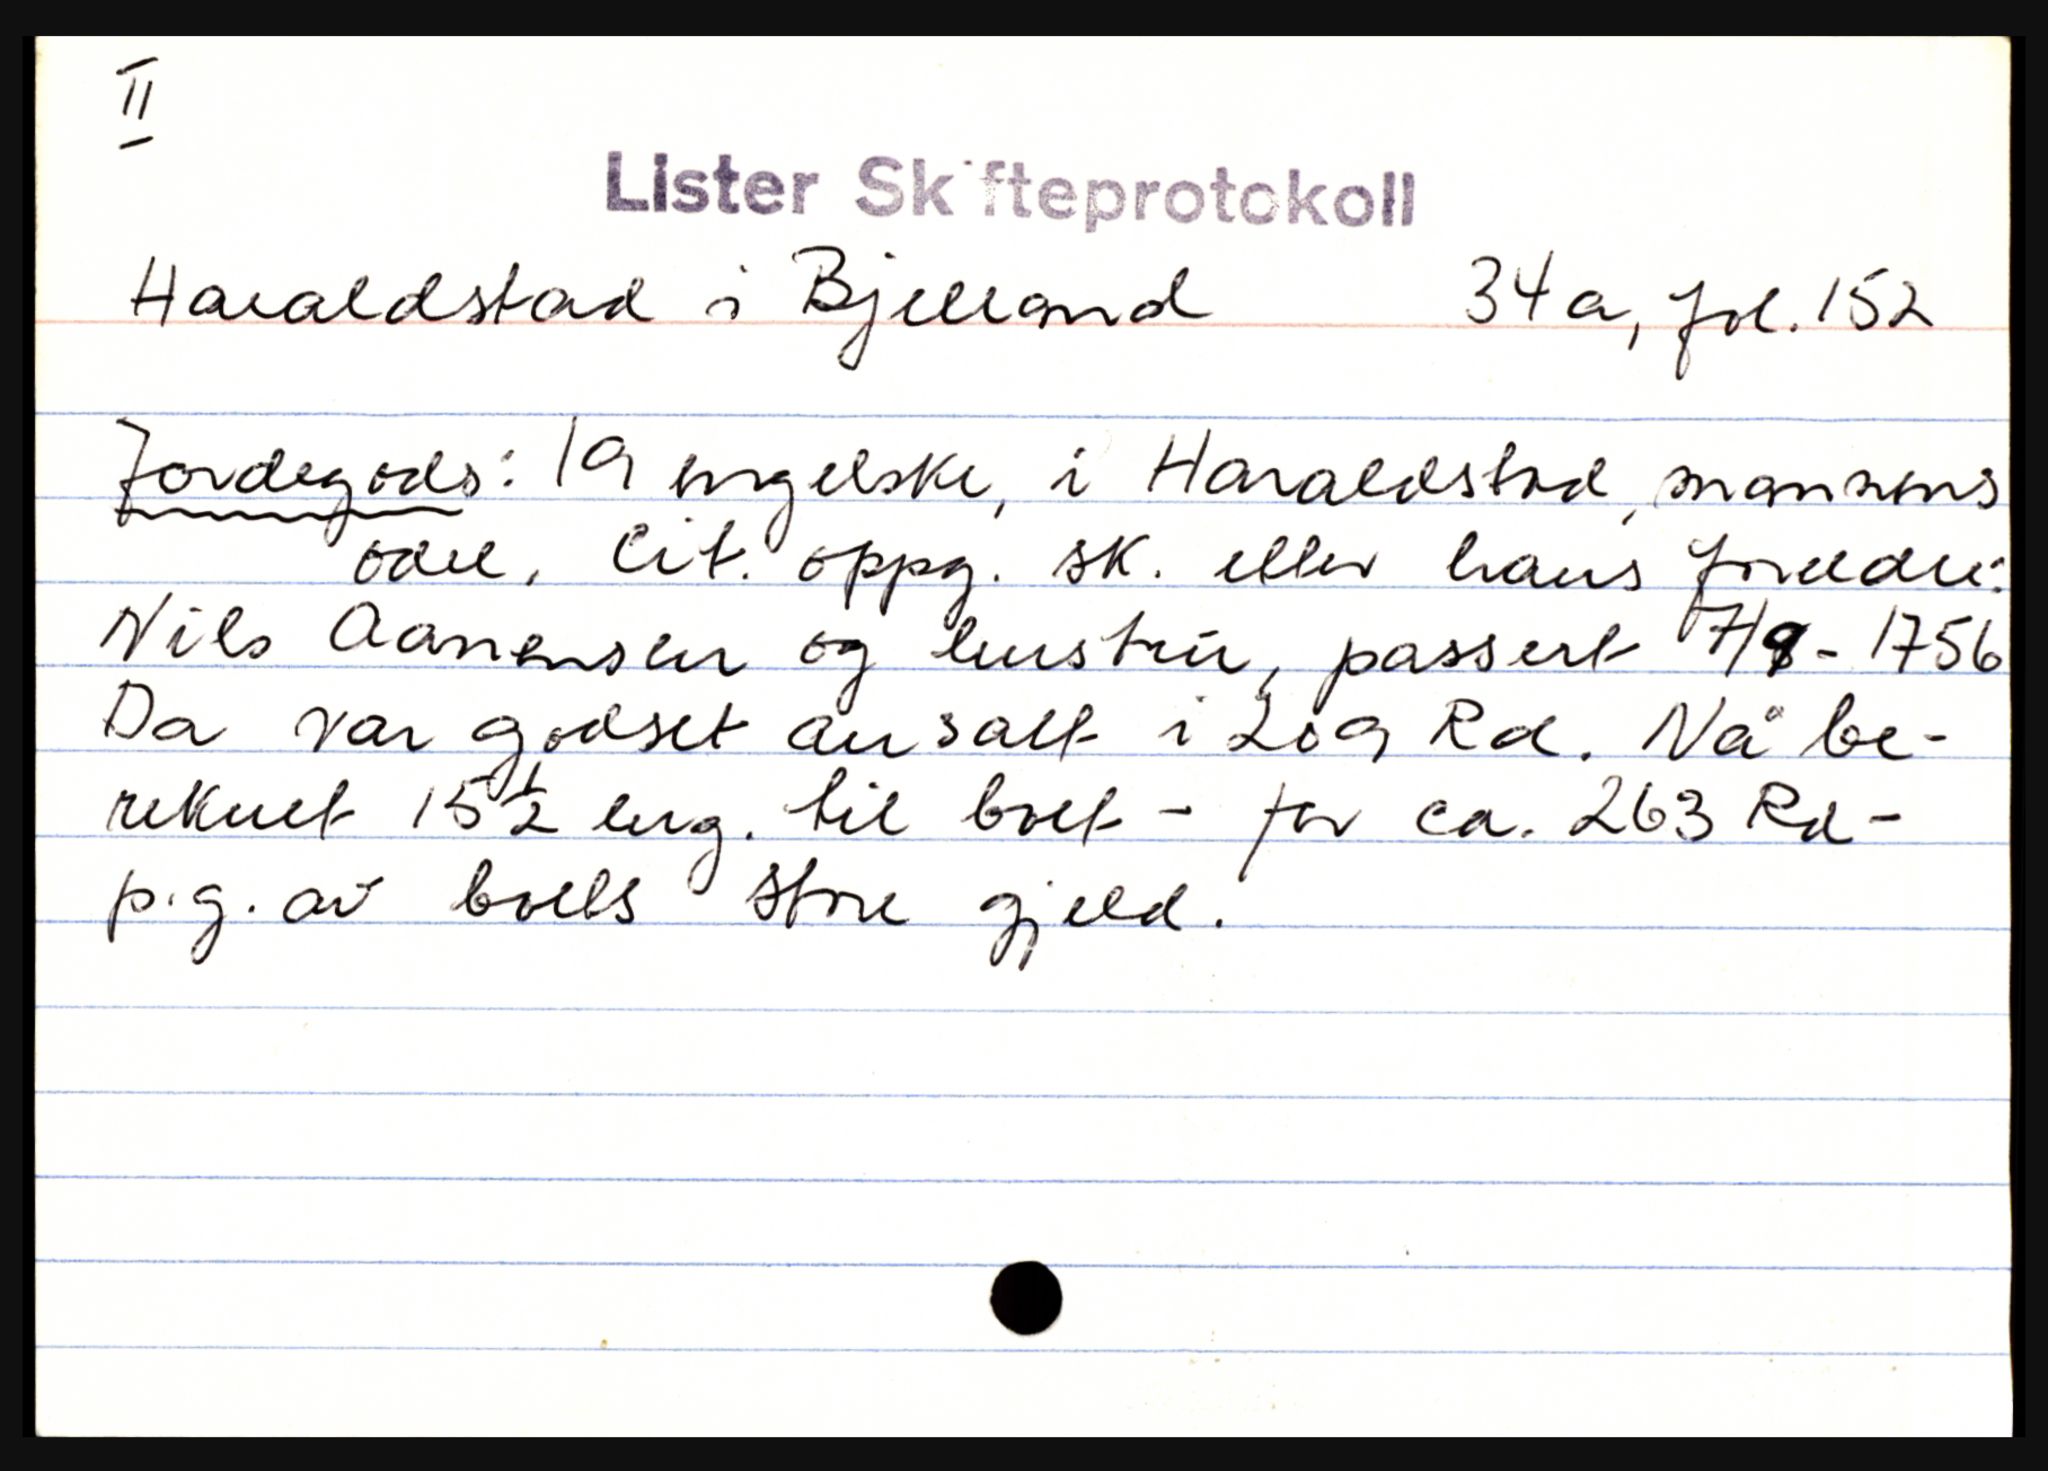 II
Lister Skifteprotokoll
Haraldstad i Bjelland 34a, fol. 152
Jordegods: 19 engelske, i Haraldstad, mannens
odel, Cit. oppg. sk. etter hans foreldre:
Nils Aanensen og hustru, passert 7/9 - 1756
Da var godset ansatt i 209 Rd. Nå be-
reknet 15 1/2 eng. til boet - for ca. 263 Rd -
p.g. av boets store gjeld.